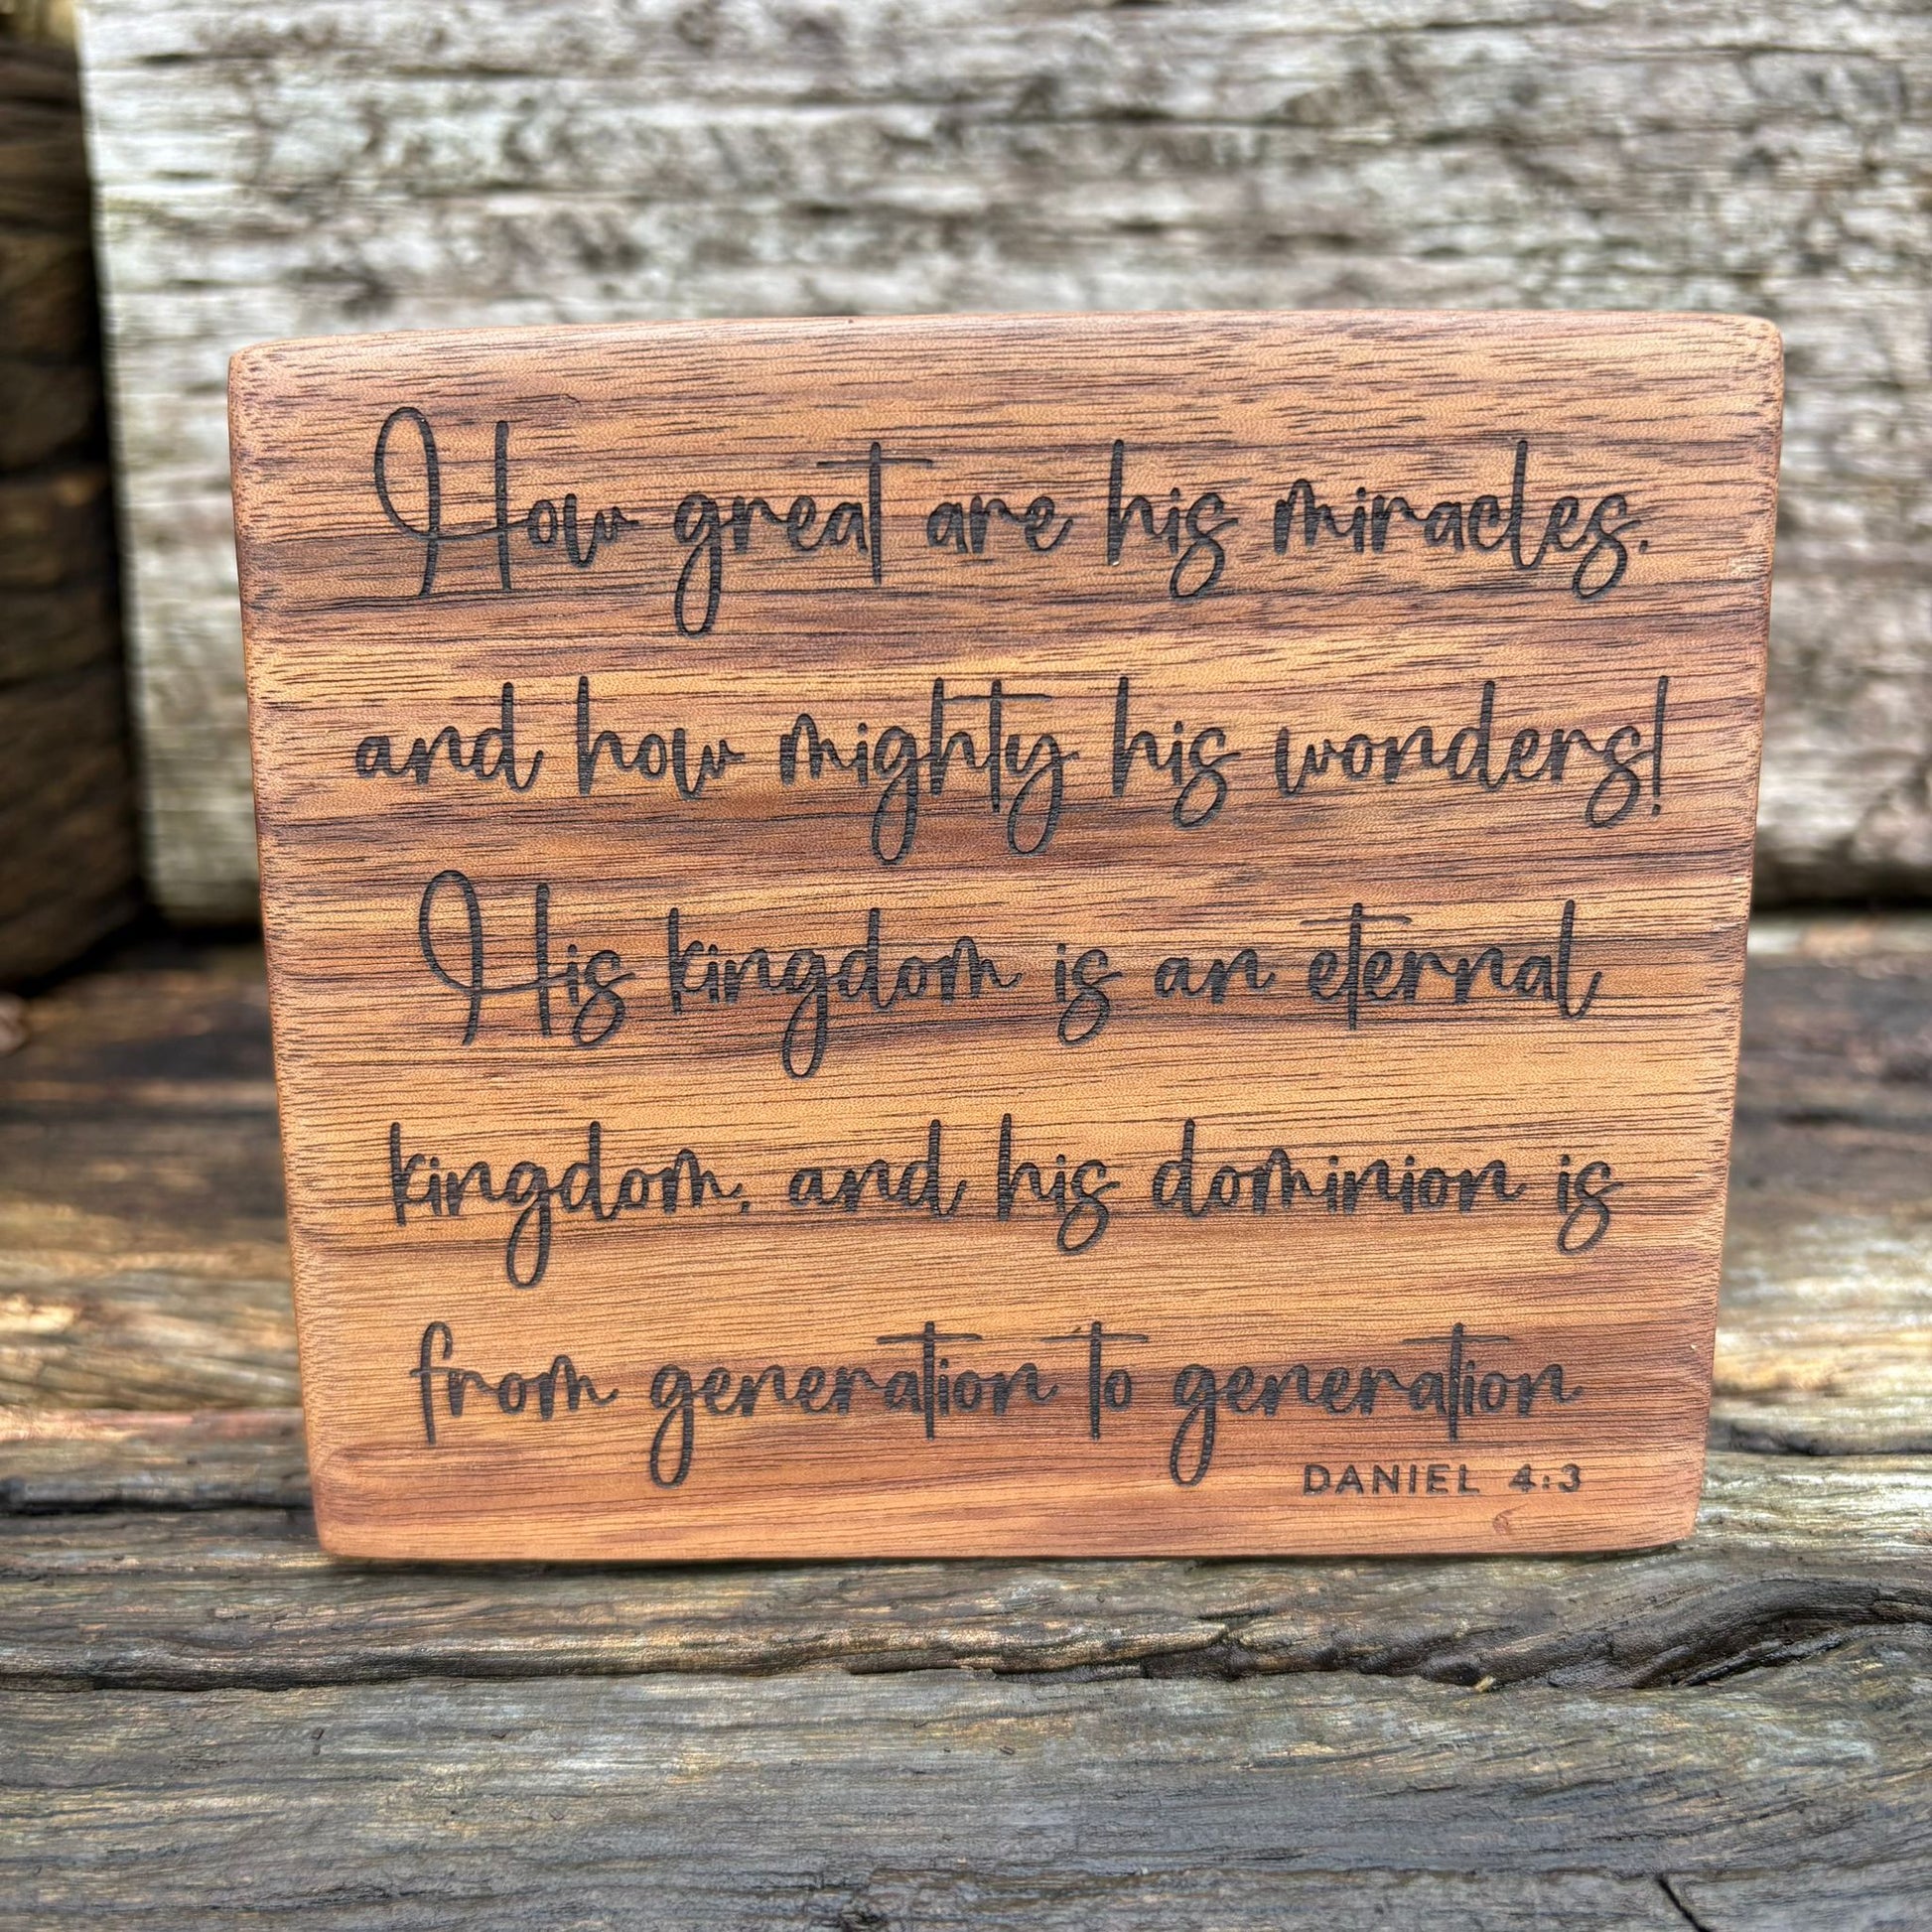 How great are his miracles,
and how mighty his wonders!
His kingdom is an eternal
kingdom, and his dominion is
from generation to generation
DANIEL 4:3